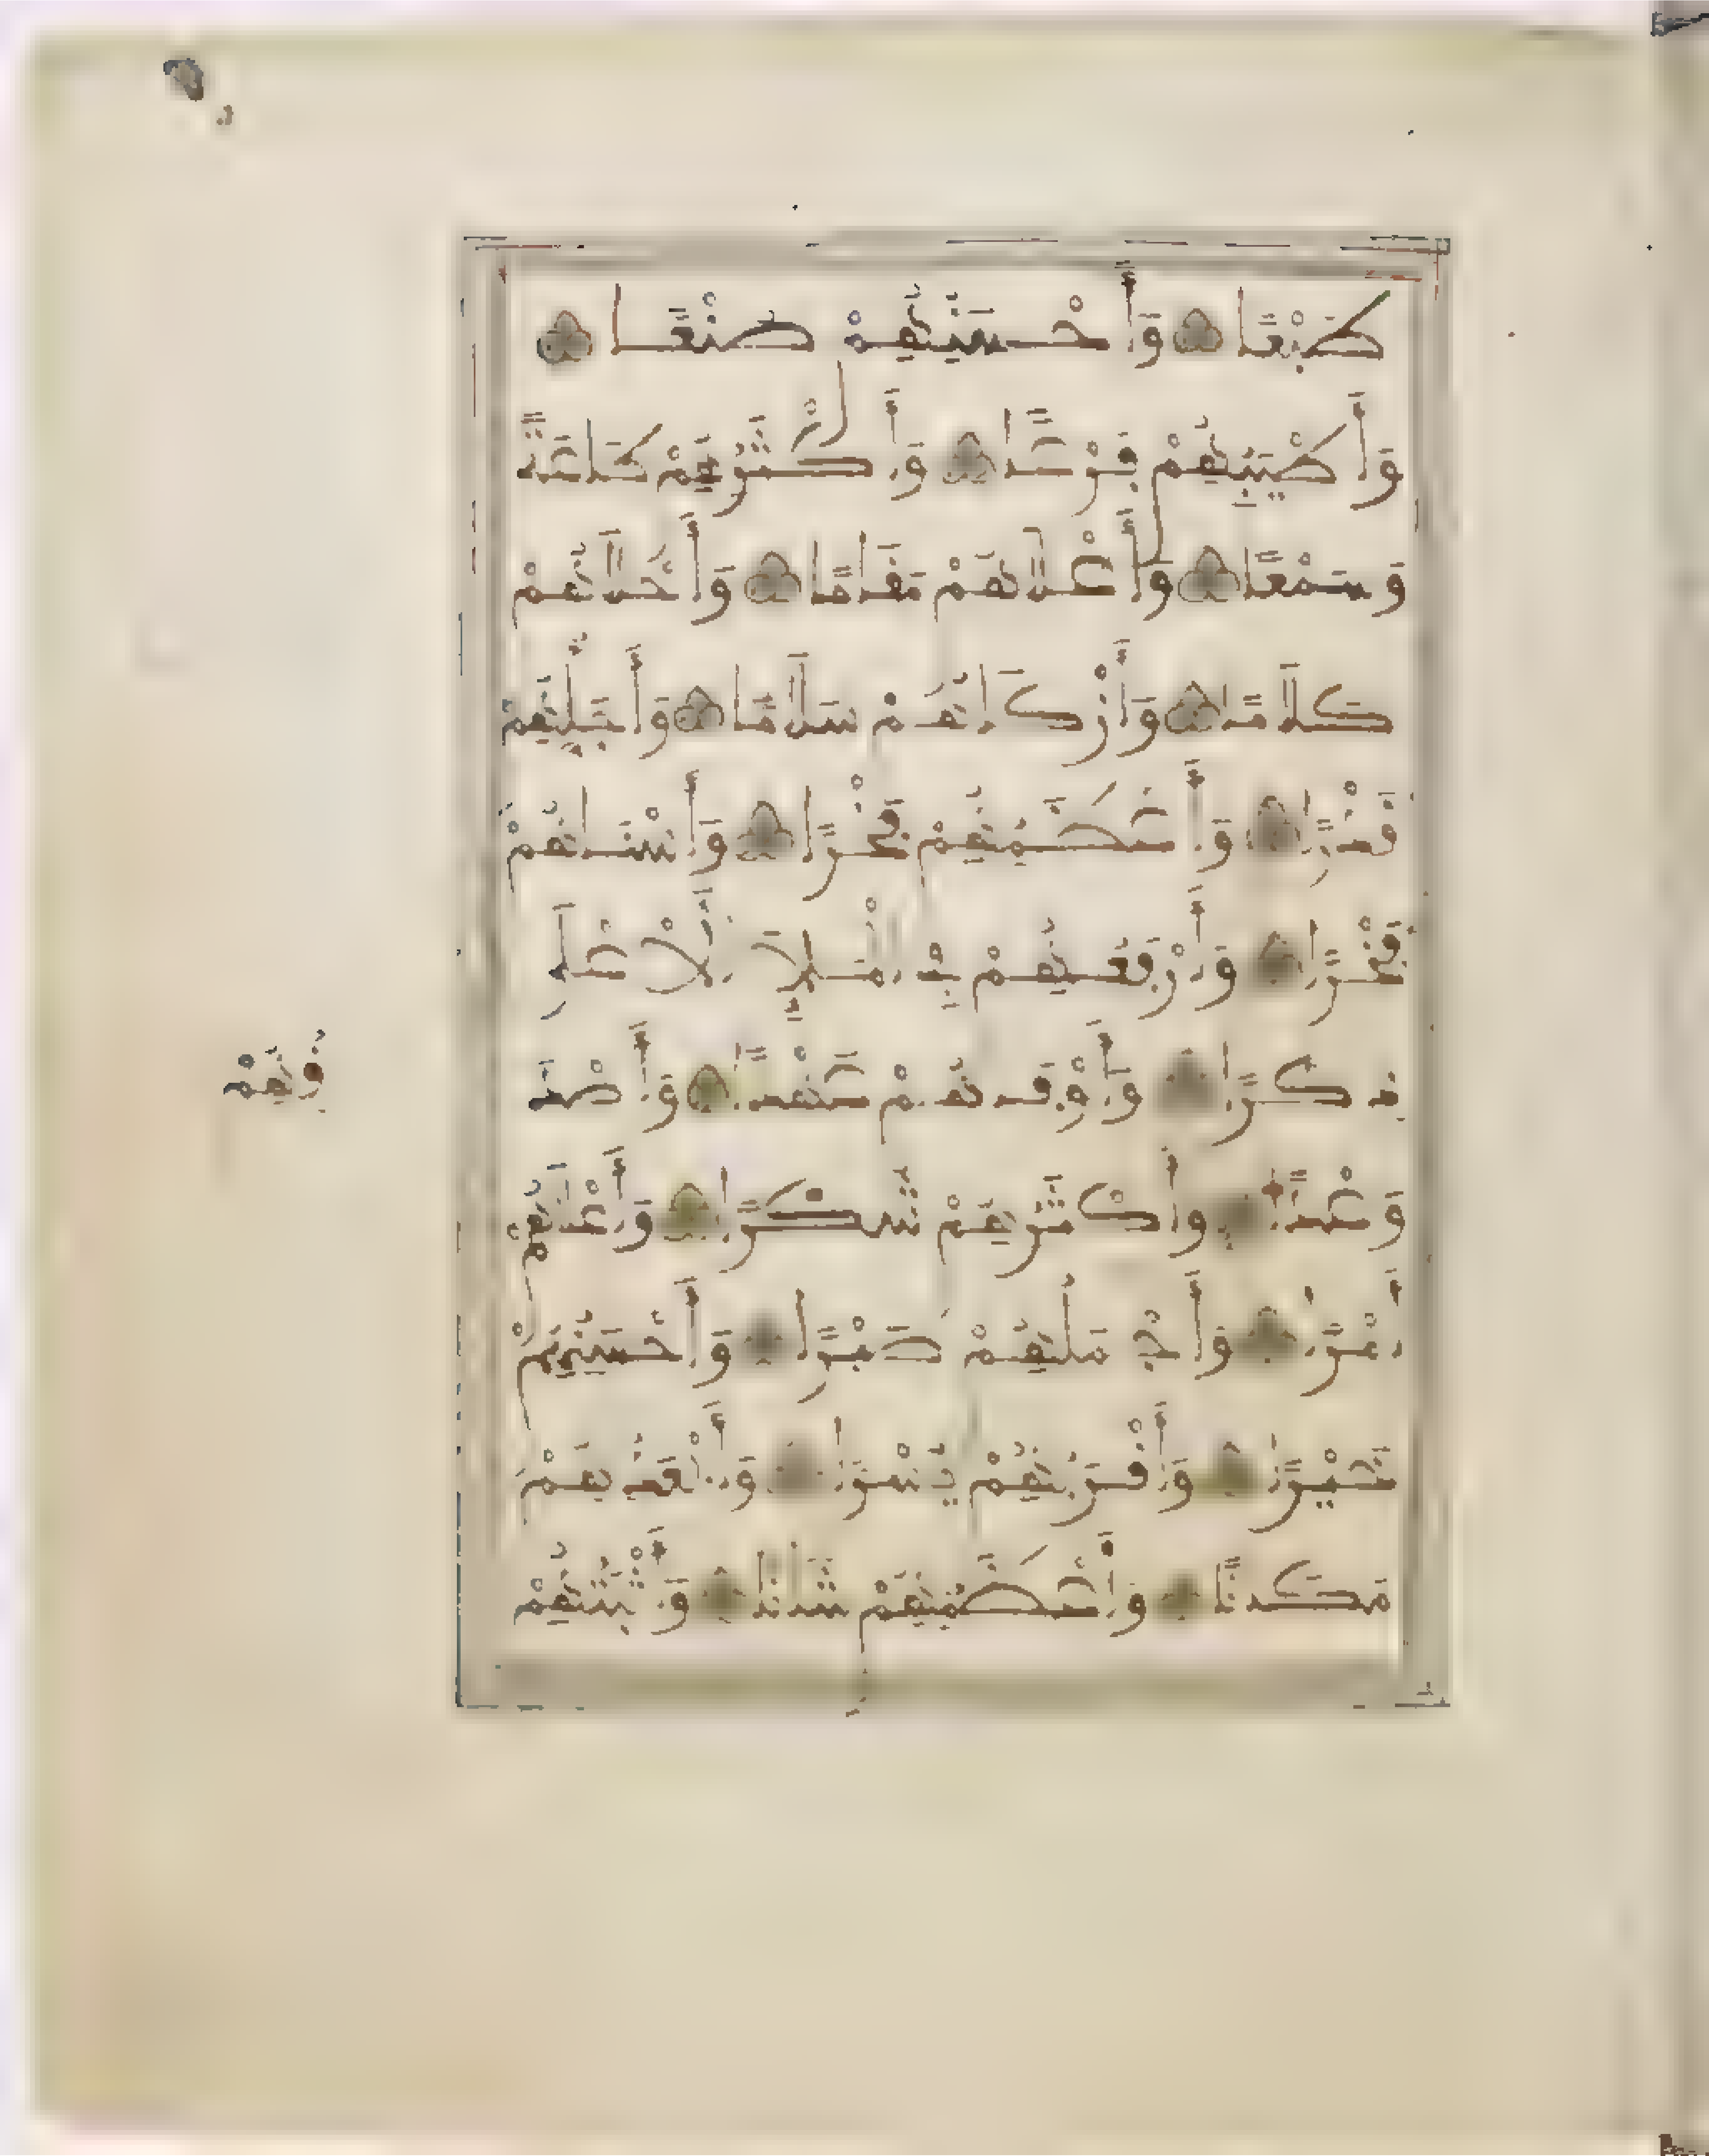 طَبْعًا وَأَحْسَنِهِمْ صُنْعًا
وَأَطْيَبِهِمْ فَرْعًا وَأَكْثَرِهِمْ طَاعَةً
وَسَمْعًا وَأَعْلَاهُمْ مَقَامًا وَأَحْلَاهُمْ
كَلَامًا وَأَزْكَاهُمْ سَلَامًا وَأَجَلِّهِمْ
قَدْرًا وَأَعْظَمِهِمْ فَخْرًا وَأَسْنَاهُمْ
فَخْرًا وَأَرْفَعِهِمْ فِي الْمَلَإِ الْأَعْلَى
ذِكْرًا وَأَوْفَاهُمْ عَهْدًا وَأَصْدَ
قِهِمْ
وَعْدًا وَأَكْثَرِهِمْ شُكْرًا وَأَعْلَاهُمْ
أَمْرًا وَأَجْمَلِهِمْ صَبْرًا وَأَحْسَنِهِمْ
خَيْرًا وَأَقْرَبِهِمْ يُسْرًا وَأَبْعَدِهِمْ
مَكَانًا وَأَعْظَمِهِمْ شَانًا وَأَثْبَتِهِمْ